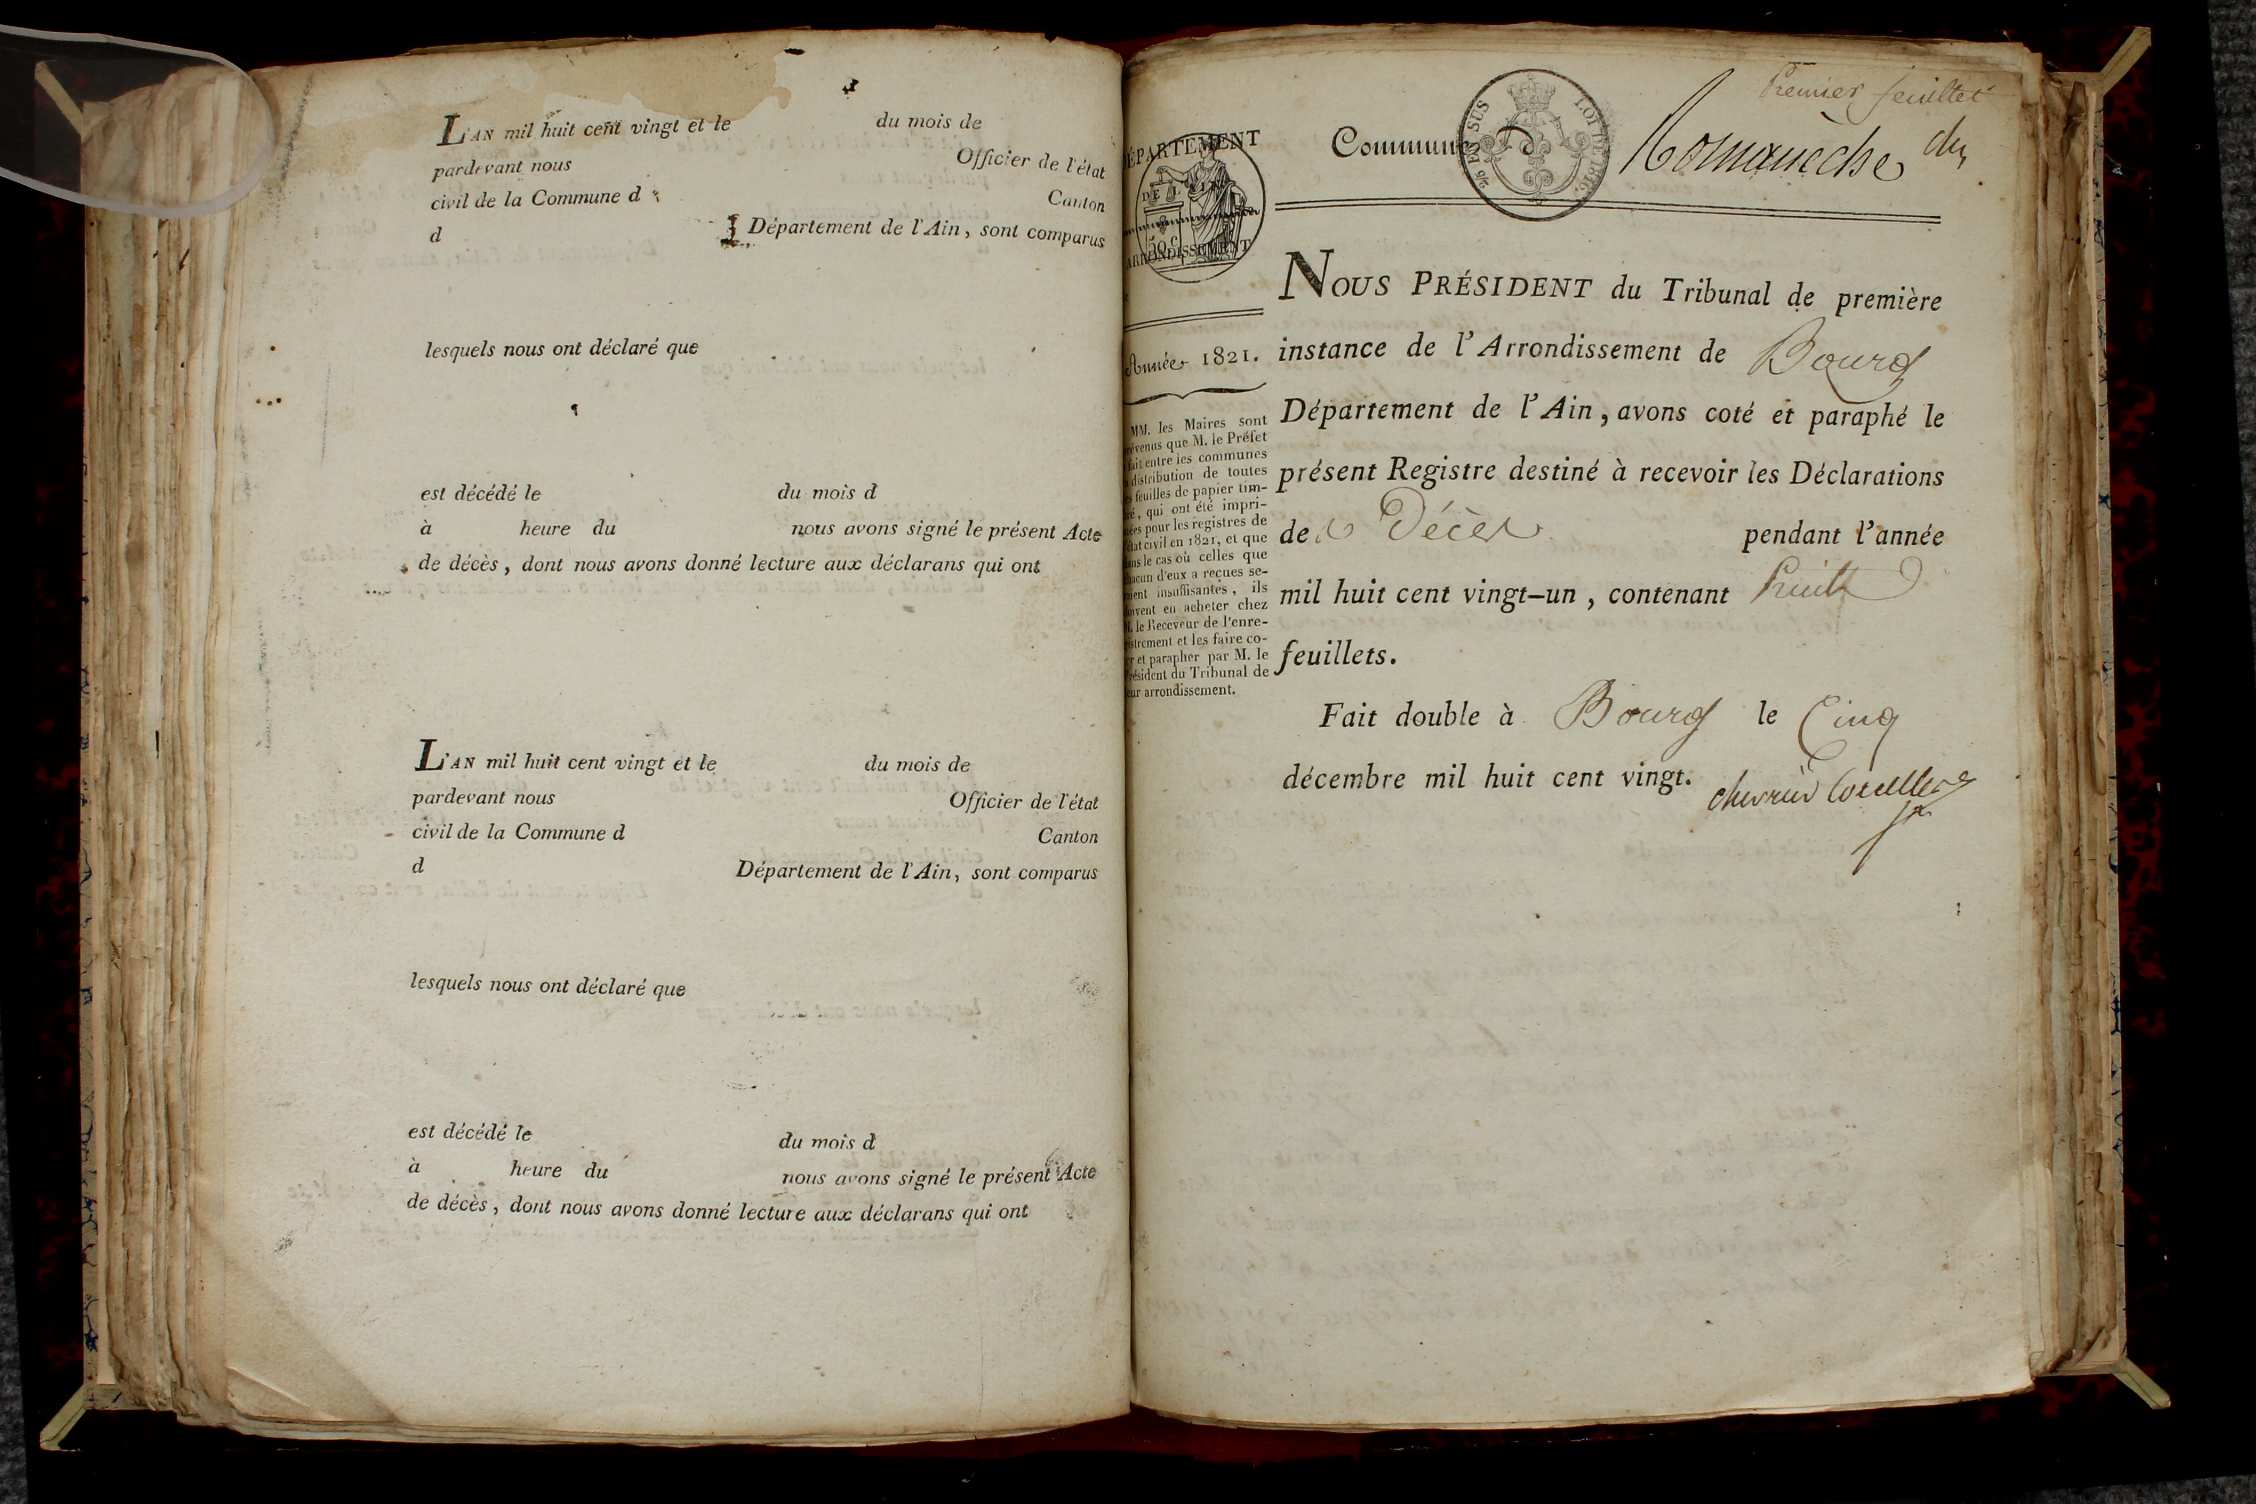 L'AN mil huit cent vingt et le du mois de
pardevant nous Officier de l'état
civil de la Commune d Canton
d Département de l'Ain, sont comparus
lesquels nous ont déclaré que
est décédé le du mois d
à heure du nous avons signé le présent Acte
de décès, dont nous avons donné lecture aux déclarans qui ont
L'AN mil huit cent vingt et le du mois de
pardevant nous Officier de l'état
civil de la Commune d Canton
d Département de l'Ain, sont comparus
lesquels nous ont déclaré que
est décédé le du mois d
à heure du nous avons signé le présent Acte
de décès, dont nous avons donné lecture aux déclarans qui ont
Premier feuillet
DÉPARTEMENT
DE L'AIN
50 c
ARRONDISSEMENT
Année 1821.
MM. les Maires sont
prévenus que M. le Préfet
a fait entre les communes
la distribution de toutes
les feuilles de papier tim-
bré, qui ont été impri-
mées pour les registres de
l'état civil en 1821, et que
dans le cas où celles que
chacun d'eux a reçues se-
raient insuffisantes, ils
doivent en acheter chez
M. le Receveur de l'enre-
gistrement et les faire co-
ter et parapher par M. le
Président du Tribunal de
leur arrondissement.
Commune Romanèche
EN SUS
LOI DE 1816.
NOUS PRÉSIDENT du Tribunal de première
instance de l'Arrondissement de Bourg
Département de l'Ain, avons coté et paraphé le
présent Registre destiné à recevoir les Déclarations
de Décès pendant l'année
mil huit cent vingt-un, contenant huit
feuillets.
Fait double à Bourg le Cinq
décembre mil huit cent vingt.